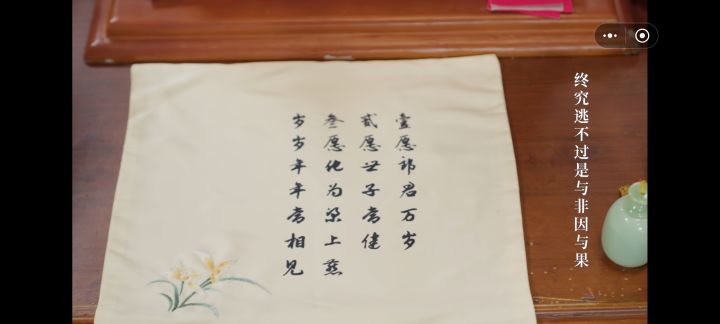 终究逃不过是与非因与果
壹愿郎君万岁
贰愿世子常健
叁愿化为梁上燕
岁岁年年常相见